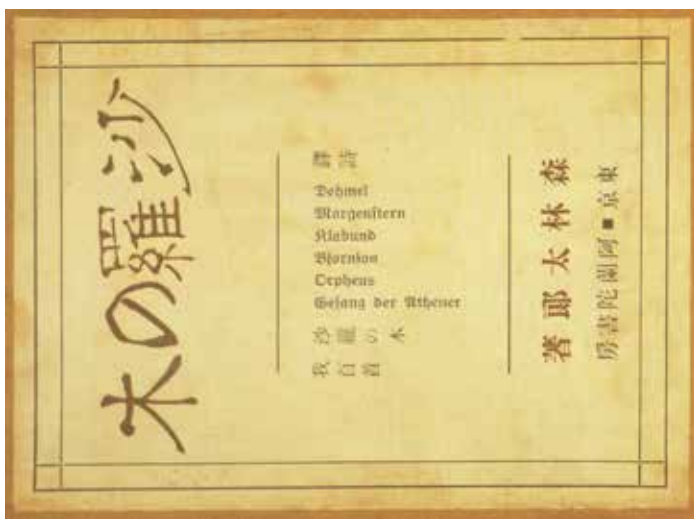 沙羅の木
譯詩
Dehmel
Morgenstern
Klabund
Bjornson
Orpheus
Gesang der Athener
沙羅の木
我百首
森林太郎著
東京■阿蘭陀書房